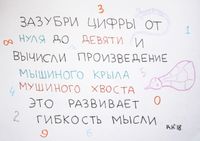 3
ЗАЗУБРИ ЦИФРЫ ОТ
8 НУЛЯ ДО ДЕВЯТИ И 1
ВЫЧИСЛИ ПРОИЗВЕДЕНИЕ
5 МЫШИНОГО КРЫЛА
4 МУШИНОГО ХВОСТА
ЭТО РАЗВИВАЕТ 0
2 ГИБКОСТЬ МЫСЛИ
9 6